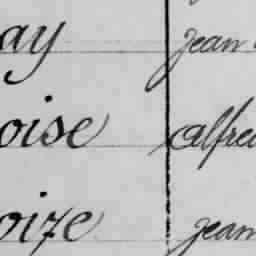 ay jean
oise alfred
oize jean